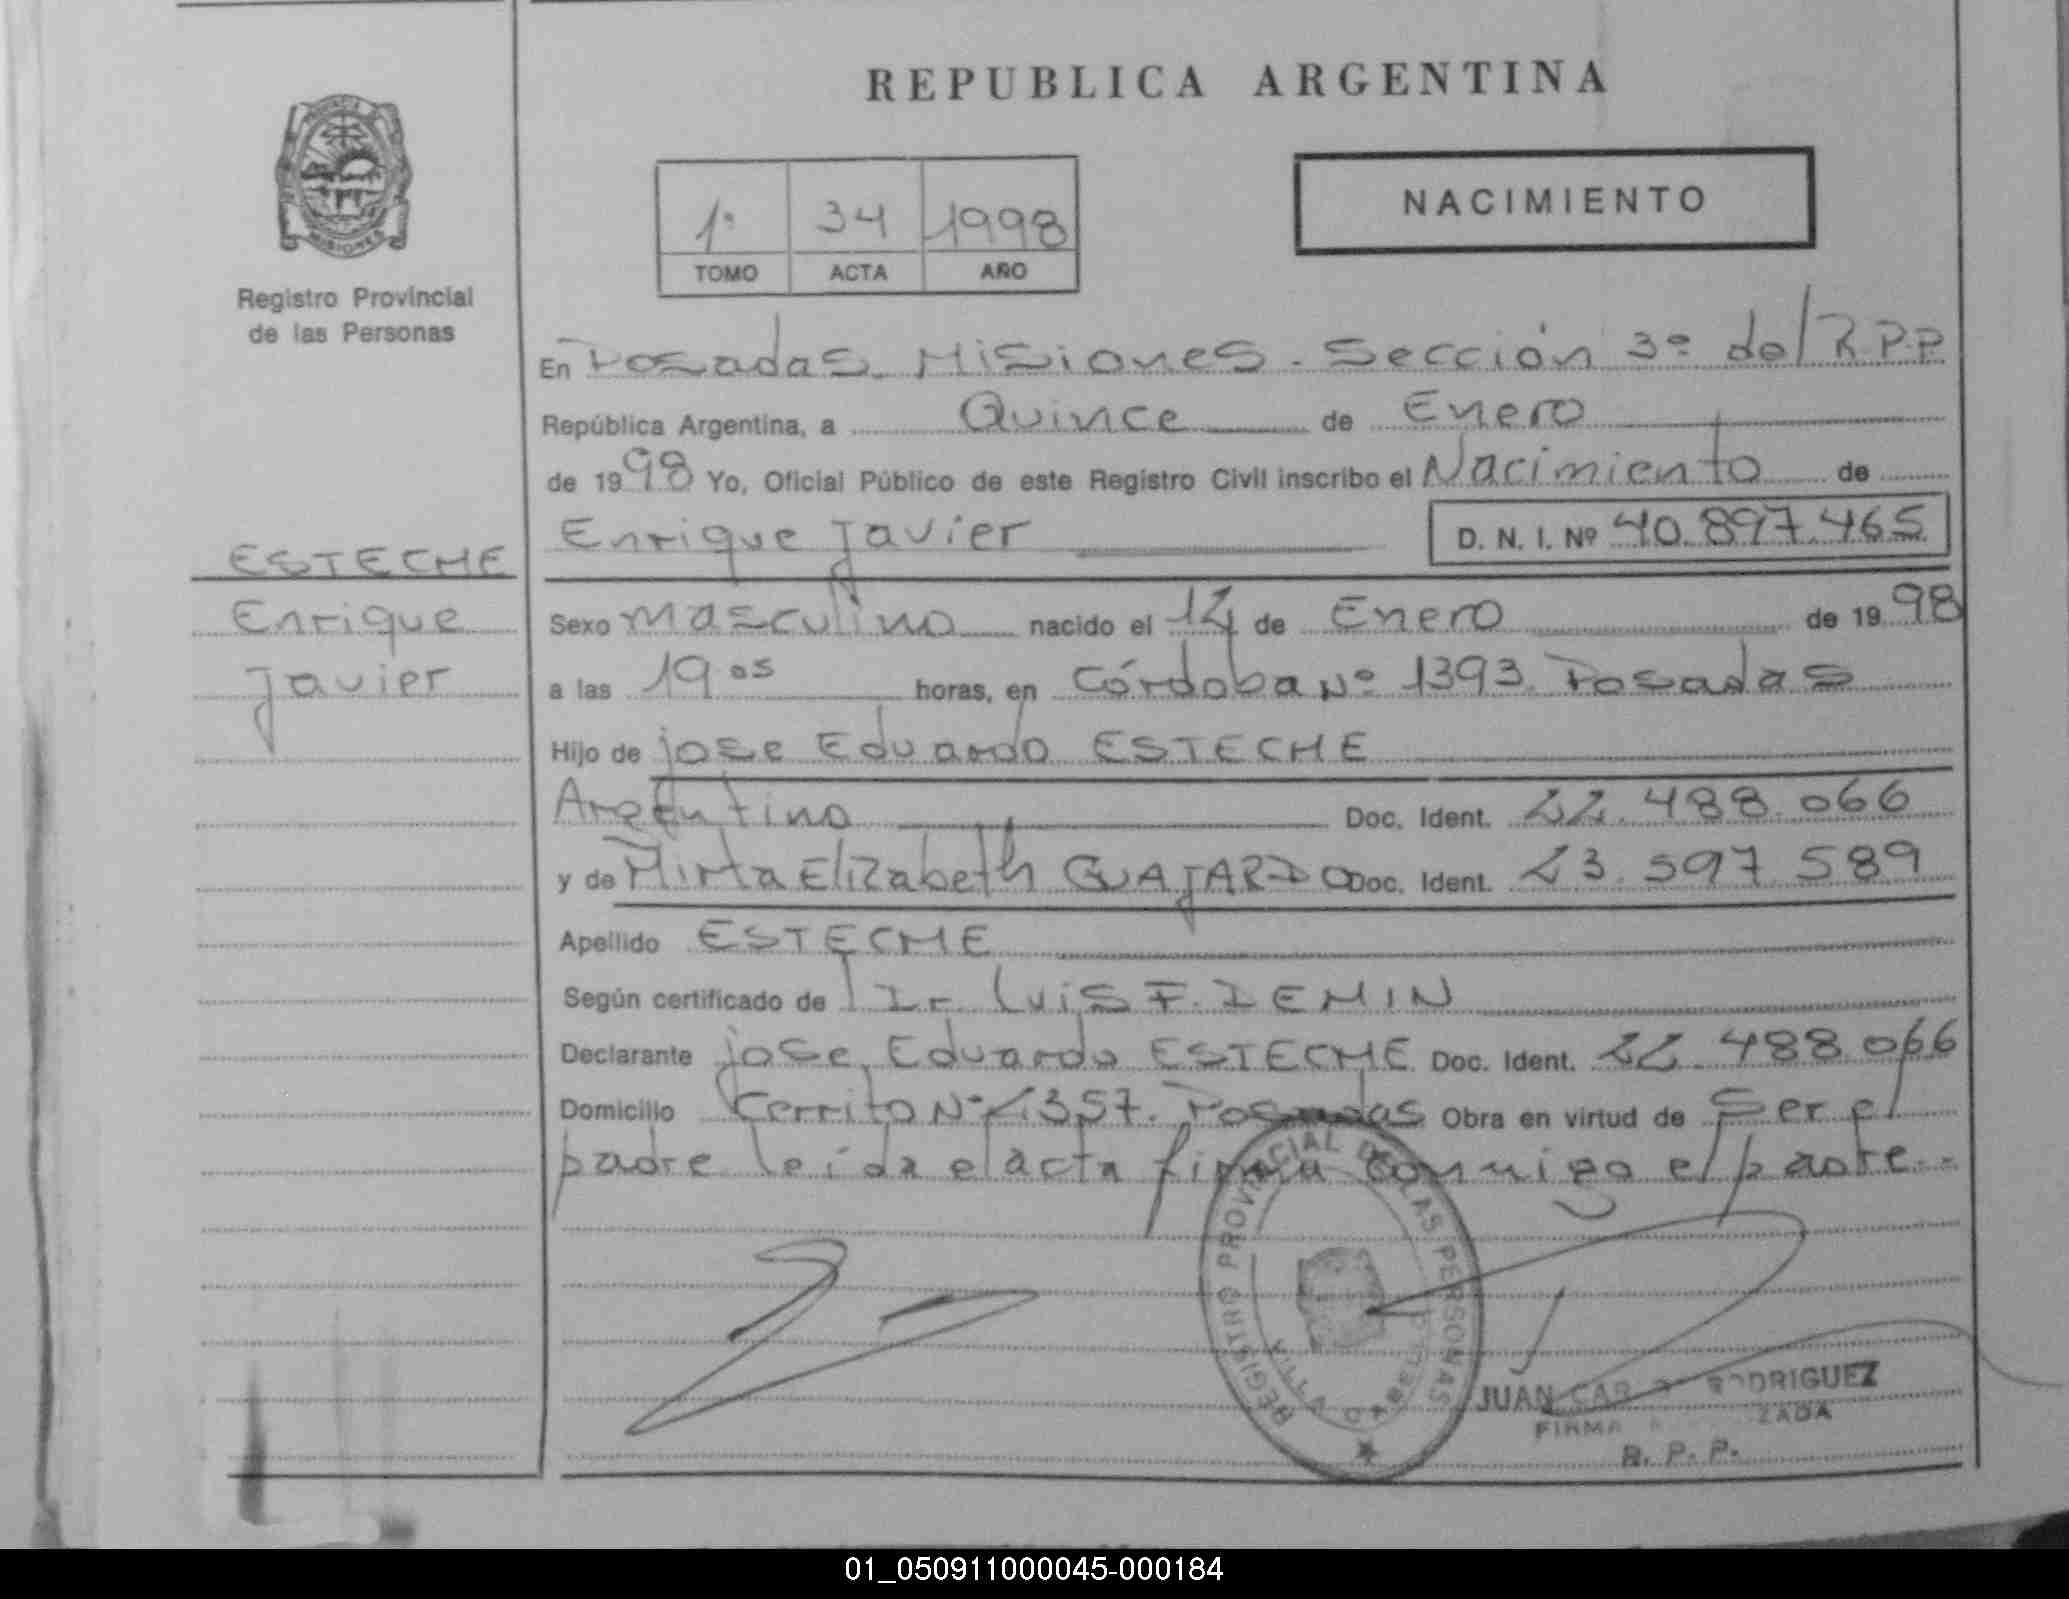 REPUBLICA ARGENTINA
PROVINCIA
MISIONES
Registro Provincial
de las Personas
1º 34 1998
TOMO ACTA AÑO
NACIMIENTO
En Posadas. Misiones. Sección 3º del R.P.P
República Argentina, a Quince de Enero
de 1998 Yo, Oficial Público de este Registro Civil inscribo el Nacimiento de
Enrique Javier D. N. I. Nº 40.897.465
ESTECHE
Enrique
Javier
Sexo Masculino nacido el 14 de Enero de 1998
a las 19 05 horas, en Córdoba Nº 1393. Posadas
Hijo de Jose Eduardo ESTECHE
Argentino Doc. Ident. 22.488.066
y de Mirta Elizabeth GUAJARDO Doc. Ident. 23.597.589
Apellido ESTECHE
Según certificado de Dr. Luis F. DEMIN
Declarante Jose Eduardo ESTECHE Doc. Ident. 22.488.066
Domicilio Cerrito Nº 2357. Posadas Obra en virtud de Ser el
padre leída el acta firma conmigo el padre..
REGISTRO PROVINCIAL DE LAS PERSONAS
JUAN CAR RODRIGUEZ
FIRMA ZADA
R. P. P.
01_050911000045-000184